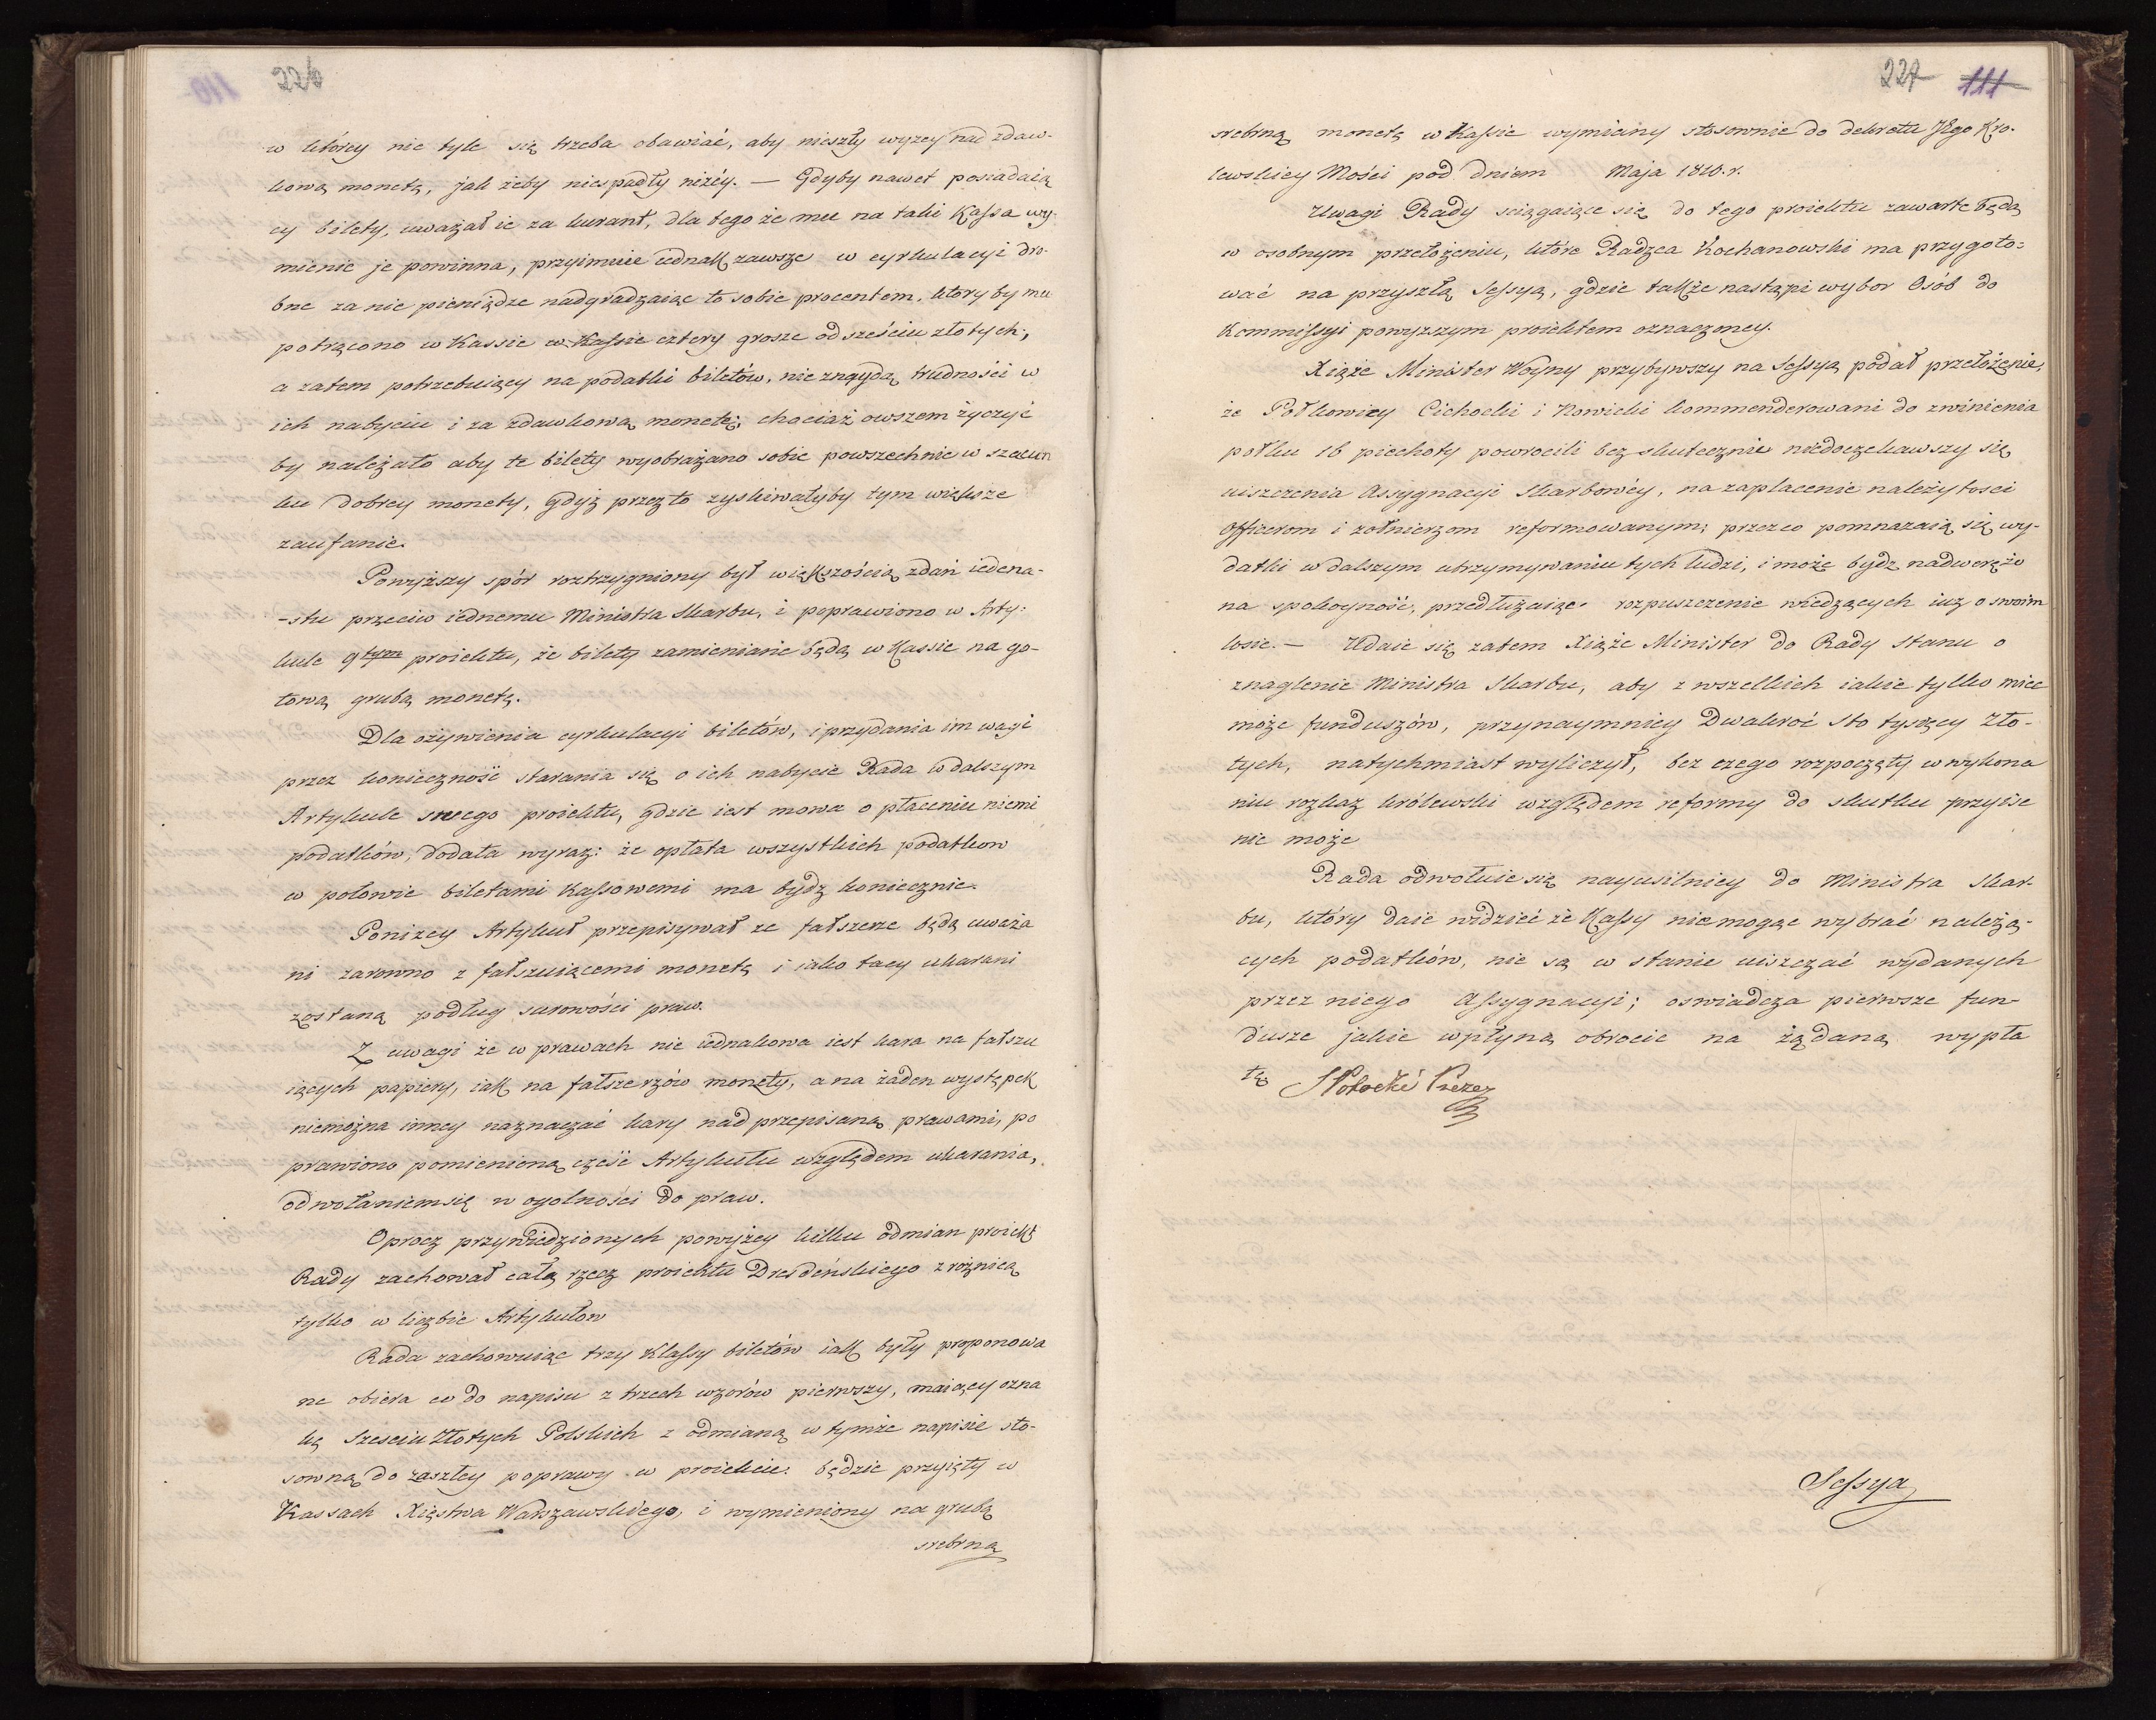 226
w którey nie tyle się trzeba obawiać, aby nieszły wyzey nad zdaw-
kową monetę, jak żeby niespadły niżéy. — Gdyby nawet posiadaią
cy bilety, uważał ie za kurant, dla tego że mu na taki Kassa wy-
mienic je powinna, przyimuie iednak zawsze w cyrkulacyi dro-
bne za nie pieniądze nadgradzaiąc to sobie procentem, ktory by mu
potrącono w Kassie w Kassie cztery grosze od sześciu złotych;
a zatem potrzebuiący na podatki biletów, nie znaydą trudności w
ich nabyciu i za zdawkową monetę; chociaż owszem życzyć
by należało aby te bilety wyobrażano sobie powszechnie w szacun
ku dobrey monety, Gdyż przez to zyskiwałyby tym większe
zaufanie.
Powyższy spór roztrzygniony był większością zdań iedena-
-stu przeciw iednemu Ministra Skarbu, i poprawiono w Arty-
kule 9tym proiektu, że bilety zamieniane będą w Kassie na go-
tową grubą monetę.
Dla ożywienia cyrkulacyi biletów, i przydania im wagi
przez konieczność starania się o ich nabycie Rada w dalszym
Artykule swego proiektu, gdzie iest mowa o płaceniu niemi
podatków, dodała wyraz: że opłata wszystkich podatkow
w połowie biletami Kassowemi ma bydz koniecznie.
Ponizey Artykuł przepisywał ze fałszerze będą uważa
ni zarowno z fałszuiącemi monetę i iako tacy ukarani
zostaną podług surowości praw.
Z uwagi że w prawach nie iednakowa iest kara na fałszu
iących papiery, iak na fałszerzów monety, a na żaden występek
niemożna inney naznaczać kary nad przepisaną prawami, po
prawiono pomienioną część Artykułu względem ukarania,
odwołaniem się w ogolności do praw.
Oprocz przywiedzionych powyżey kilku odmian proiekt
Rady zachował całą rzecz proiektu Drezdeńskiego z rożnicą
tylko w liczbie Artykułow
Rada zachowuiąc trzy Klassy biletów iak były proponowa
ne obiera co do napisu z trzech wzorów pierwszy, maiący ozna
kę Sześciu Złotych Polskich z odmianą w tymże napisie sto-
sowną do zaszłey poprawy w proiekcie: będzie przyięty w
Kassach Xięstwa Warszawskiego, i wymieniony na grubą
srebrną
227 111
srebrną monetę w Kassie wymiany stosownie do dekretu JEgo Kro-
lewskiey Mości pod dniem Maja 1810. r.
Uwagi Rady sciągaiące się do tego proiektu zawarte będą
w osobnym przełożeniu, które Radzca Kochanowski ma przygoto-
wać na przyszłą Sessyą, gdzie także nastąpi wybor Osób do
Kommissyi powyższym proiektem oznaczoney.
Xiąże Minister Woyny przybywszy na Sessyą podał przełożenie,
że Połkowicy Cichocki i Nowicki kommenderowani do zwinienia
połku 16 piechoty powrocili bez skutecznie niedoczekawszy się
uiszczenia Assygnacyi Skarbowéy, na zapłacenie należytosci
Officerom i żołnierzom reformowanym; przezco pomnażaią się wy-
datki w dalszym utrzymywaniu tych ludzi, i może bydz nadweręžo
na spokoyność, przedłużaiąc rozpuszczenie wiedzących iuz o swoim
losie. — Udaie się zatem Xiąże Minister do Rady Stanu o
znaglenie Ministra Skarbu, aby z wszelkich iakie tylko miec
może funduszów, przynaymniey Dwakroć sto tysięcy Zło-
tych, natychmiast wyliczył, bez czego rozpoczęty w wykona
niu rozkaz królewski względem reformy do skutku przyiśc
nie może
Rada odwołuie się nayusilniey do Ministra Skar-
bu, który daie widzieć że Kassy niemogąc wybrać należą-
cych podatków, nie są w stanie uiszczać wydanych
przez niego Assygnacyi; oswiadcza pierwsze fun-
dusze jakie wpłyną obrocic na żądaną wypła
tę SPotocki Prezez
Sessya